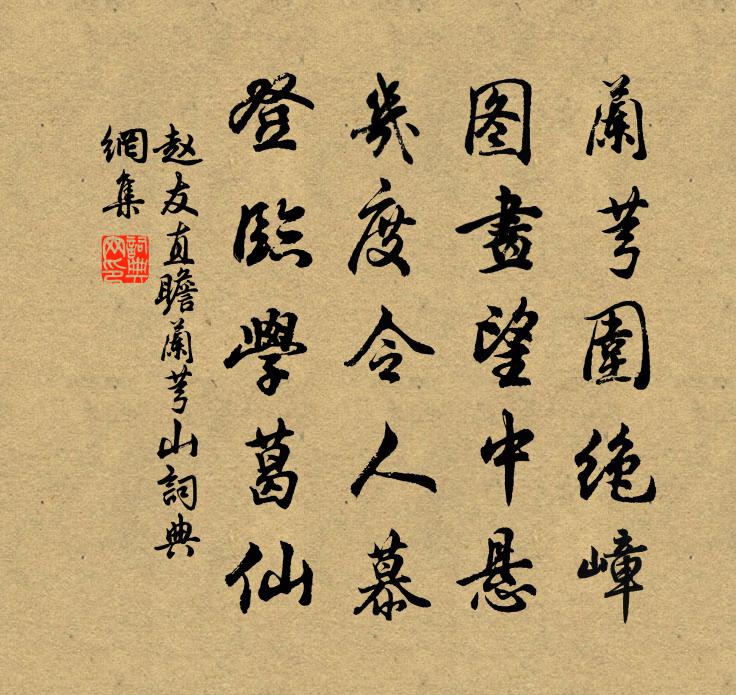 蘭芎圍绝嶂
图畫望中悬
幾度令人慕
登臨學葛仙
赵友直瞻蘭芎山詞典
網集
詞典网印